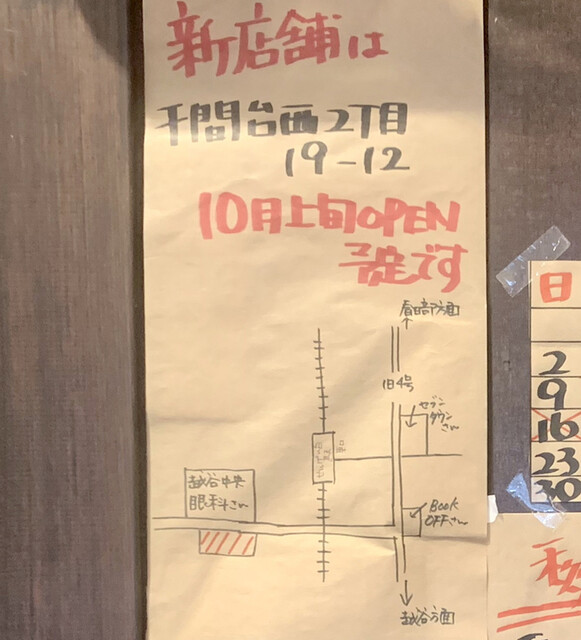 新店舗は
千間台西2丁目
19-12
10月上旬OPEN
予定です
春日部方面
旧4号
セブン
タウン
さん
西口
越谷中央
眼科さん
BOOK
OFFさん
越谷方面
日
2
9
16
23
30